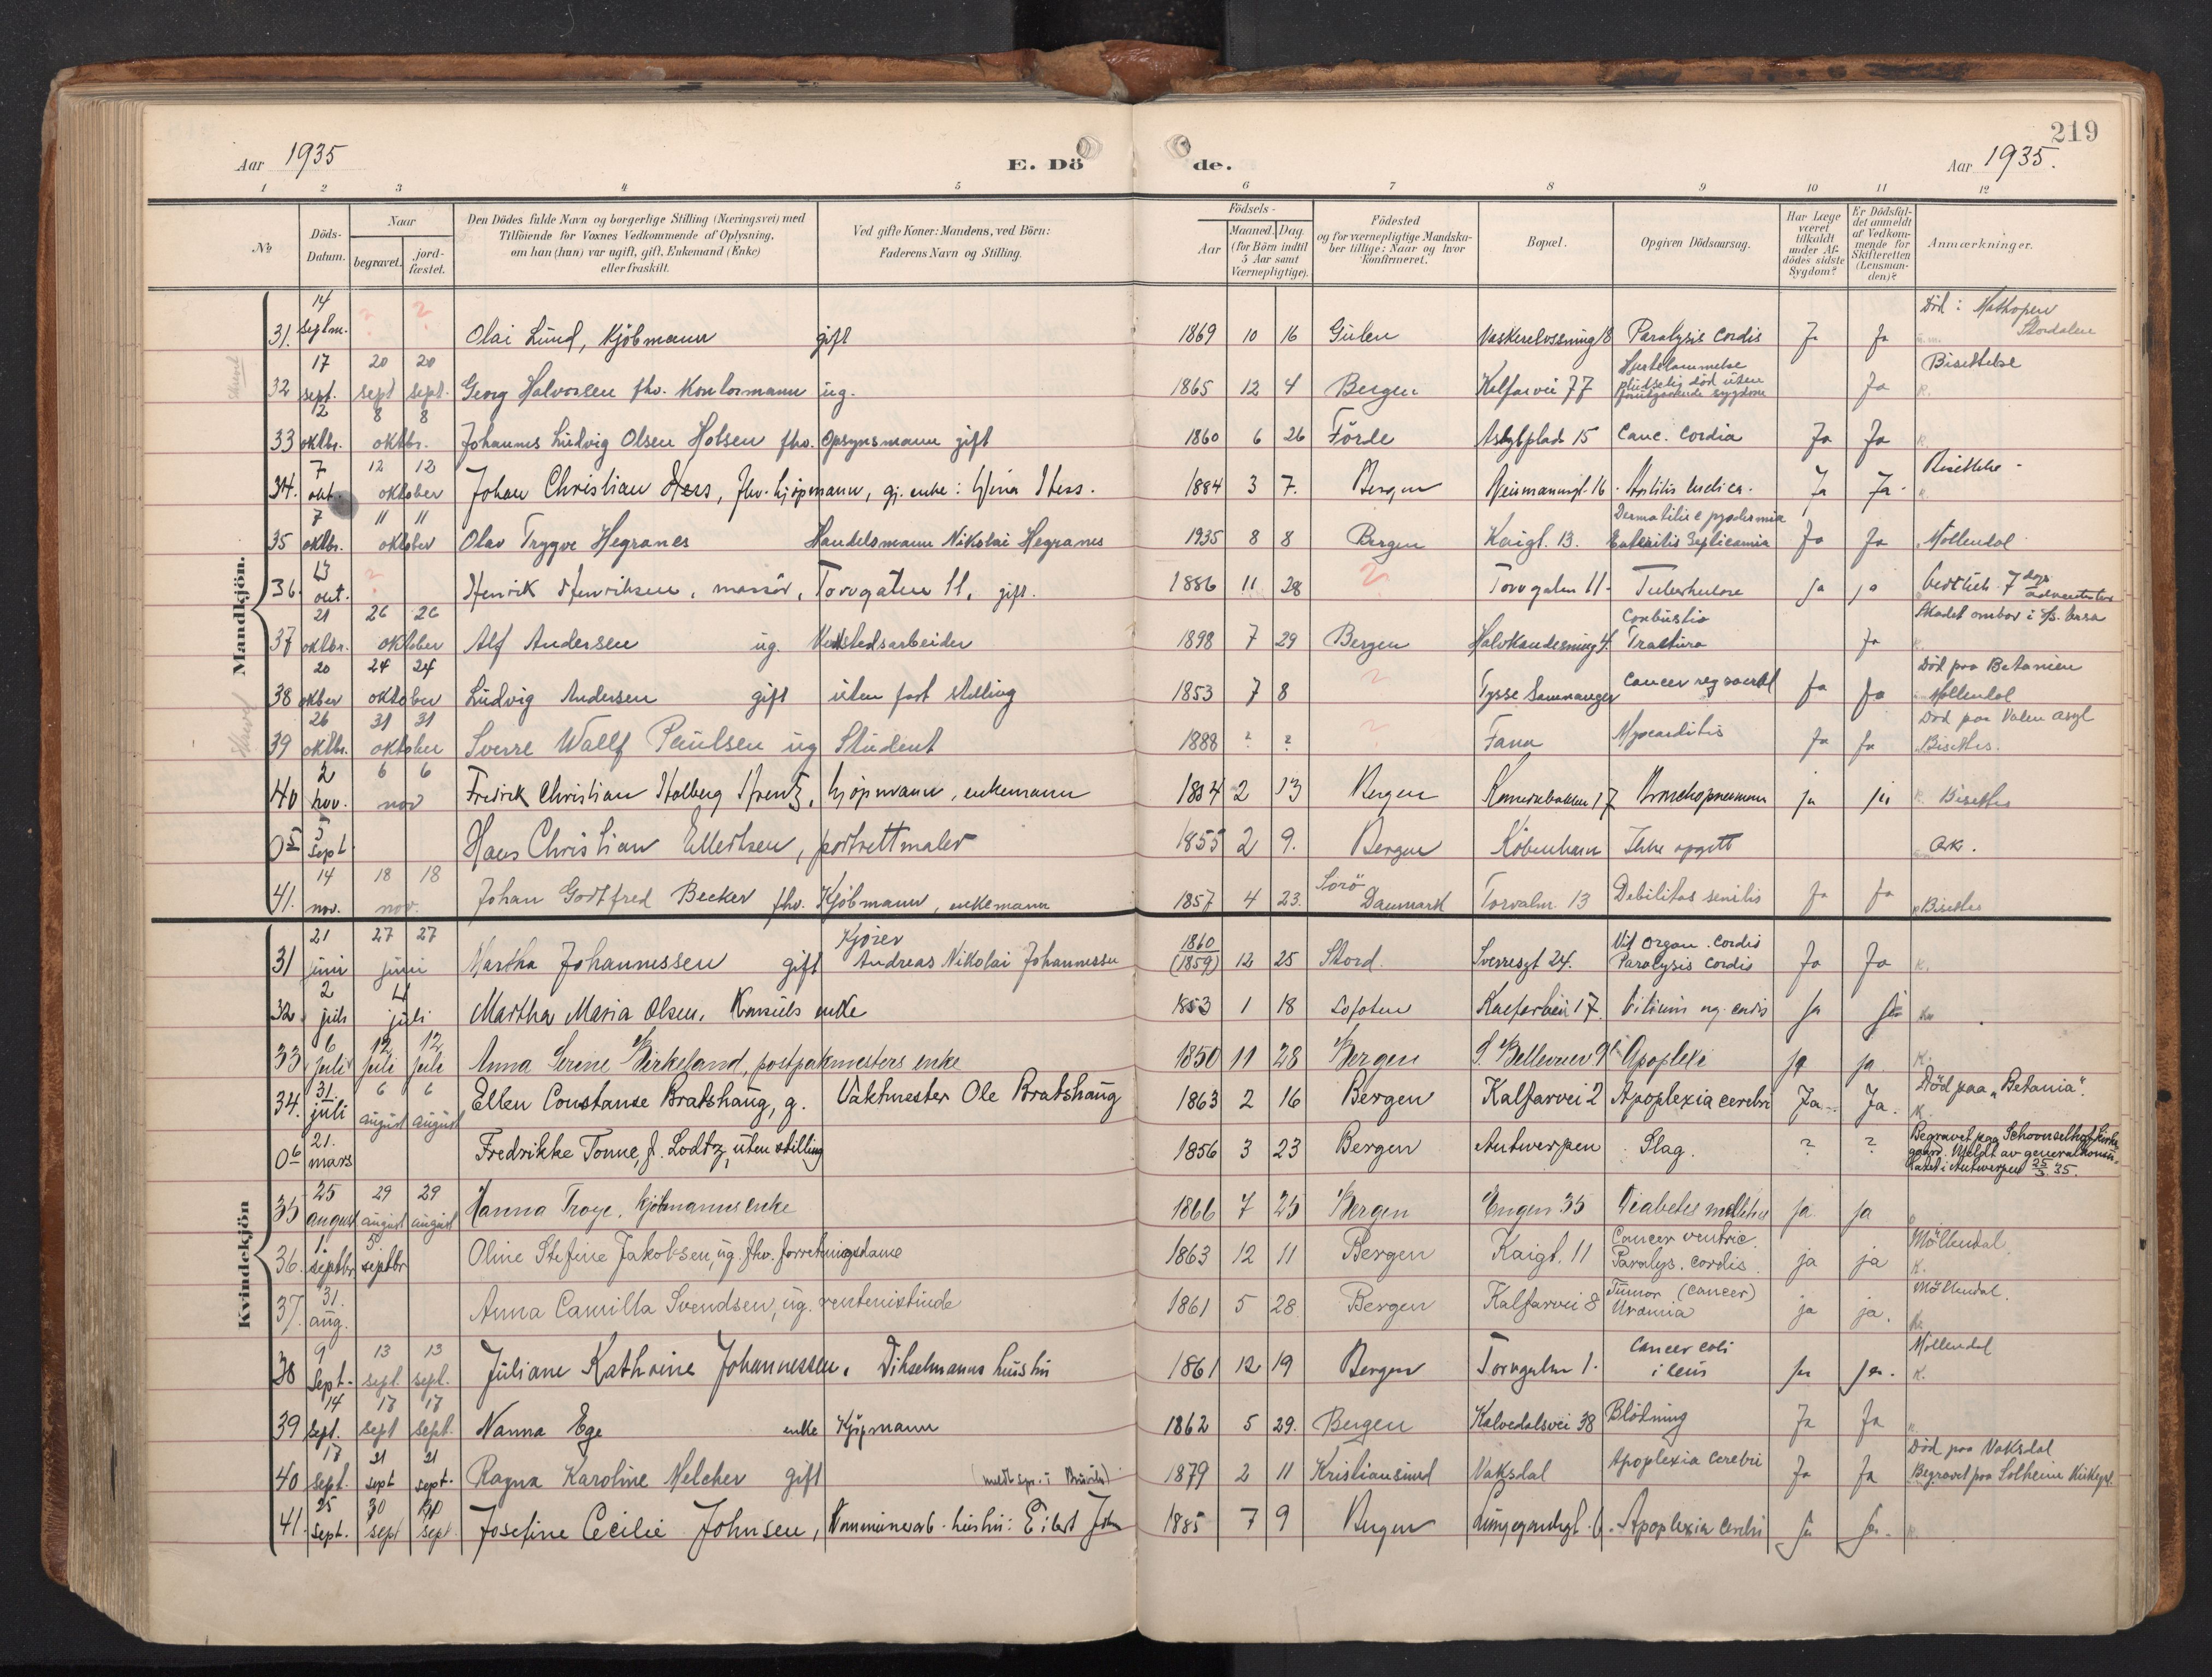 219
Aar 1935 E. Dö de. Aar 1935.
1 2 3 4 5 6 7 8 9 10 11 12
No
Döds-Datum.
Naar
begravet. jord-fæstet.
Den Dödes fulde Navn og borgerlige Stilling (Næringsvei) med
Tilföiende for Voxnes Vedkommende af Oplysning,
om han (hun) var ugift, gift, Enkemand (Enke)
eller fraskilt.
Ved gifte Koner: Mandens, ved Börn:
Faderens Navn og Stilling.
Födsels-
Aar
Maaned. Dag.
(for Börn indtil
5 Aar samt
Værnepligtige).
Födested
og for værnepligtige Mandska-
ber tillige: Naar og hvor
Konfirmeret.
Bopæl.
Opgiven Dödsaarsag.
Har Læge
været
tilkaldt
under Af-
dödes sidste
Sygdom?
Er Dödsfal-
det anmeldt
af Vedkom-
mende for
Skifteretten
(Lensman-
den)?
Anmærkninger.
Mandkjön.
31. 14 septm. ? ? Olai Lund, Kjöbmann gift 1869 10 16 Gulen Vaskerelvssmug 18 Paralysis Cordis Ja Ja Död: Mathopen Stordalen
32 17 sept. 20 sept 20 sept. Georg Halvorsen fhv. Kontormann ug. 1865 12 4 Bergen Kalfarvei 77 Hjertelammelse pludselig död uten forutgaaende sygdom Ja Bisettelse K.
33 2 oktbr. 8 8 oktbr. Johannes Ludvig Olsen Holsen fhv. Opsynsmann gift 1860 6 26 Förde Asylplads 15 Canc. Cordia Ja Ja K.
34. 7 okt. 12 12 oktober Johan Christian Hess, fhv. kjöpmann, gj. enke: Hess. 1884 3 7. Bergen Neumannsgt. 16 Ja Ja. Bisettelse K.
35 7 oktbr. 11 11 oktober Olav Trygve Hegranes Handelsmann Nikolai Hegranes 1935 8 8 Bergen Kaigt. 13. Dermatitis e pyodermia Enteritis Septicamia Ja Ja Möllendal
36. 13 okt. ? Henrik Henriksen, massör, Torvgaten 11, gift. 1886 11 28 ? Torvgaten 11. Tuberkulose ja ja 7 dags adventister
37 21 oktbr. 26 26 oktober Alf Andersen ug. Verkstedsarbeider 1898 7 29 Bergen Halvkandesmug 4. Conbustio Fractura Ja Skadet ombor i s/s. Ursa K.
38 20 oktber 24 24 oktober Ludvig Andersen gift uten fast stilling 1853 7 8 ? Tysse Samnanger Cancer Ja Ja Död paa Betanien Möllendal
39 26 oktbr. 31 31 oktober Sverre Wallf Paulsen ug Student 1888 ? ? ? Fana Myocarditis Ja Ja Död paa Valen asyl Bisettes.
40 2 nov. 6 6 nov Fredrik Christian Holberg Arentz, kjöpmann, enkemann 2 13 Bergen 17 Bronchopneumoni ja ja K. Bisettes
05 5 sept Hans Christian Ellertsen, portrettmaler 1855 2 9. Bergen Köbenhavn Ikke opgitt Ark.
41. 14 nov. 18 18 nov. Johan Godtfred Becker fhv. Kjöbmann, enkemann 1857 4 23. Sorö Danmark Torvalm. 13 Debilitas senilis Ja Ja Bisettes
Kvindekjön
31 21 juni 27 27 juni Martha Johannessen gift Kjörer Andreas Nikolai Johannessen 1860 (1859) 12 25 Stord. Sverresgt 24. Vit organ. Cordis Paralysis Cordis Ja Ja K.
32 2 juli 4 juli Martha Maria Olsen, Konsuls enke 1853 1 18 Lofoten Kalfarvei 17. Vitium org. cordis Ja Ja K.
33 6 juli 12 juli 12 juli Anna Serine Birkeland, postpakmesters enke 1850 11 28 Bergen S. Bellevuev. 9 Apoplexi ja ja K.
34. 31. juli 6 august 6 august Ellen Constanse Bratshaug, g. Vaktmester Ole Bratshaug 1863 2 16 Bergen Kalfarvei 2 Apoplexia cerebri Ja. Ja. Död paa "Betania". K.
06 21. mars Fredrikke Tonne, f. Lodtz, uten stilling 1856 3 23 Bergen Antwerpen Slag. ? ? Begravet paa Schoonselhof Kirke-gaard. Meldt av generalkonsu-latet i Antwerpen 25/3 35.
35 25 august 29 august 29 august Hanna Troye, kjöbmannsenke 1866 7 25 Bergen Engen 35 Diabetes mellitus ja ja
36. 1. septbr 5 septbr Oline Stefine Jakobsen, ug. fhv. forretningsdame 1863 12 11 Bergen Kaigt. 11 Cancer ventric. Paralys. cordis. ja ja Möllendal K.
37. 31. aug. Anna Camilla Svendsen, ug. rentenistinde 1861 5 28 Bergen Kalfarvei 8 Tumor (Cancer) Uramia ja ja. Möllendal. K.
38 9 Sept. 13 sept. 13 sept. Juliane Kathrine Johannessen, Dikselmanns hustru 1861 12 19 Bergen Torvgaten 1. Cancer coli ileus ja ja. Möllendal K.
39 14 sept. 17 sept 17 sept. Nanna Ege enke Kjöpmann 1862 5 29. Bergen Kalvedalsvei 38 Blödning Ja Ja K.
40 17 sept. 21 sept 21 sept. Ragna Karoline Melcher gift 1879 2 11 Kristiansund Vaksdal Apoplexia Cerebri Ja Ja Död paa Vaksdal Begravet paa Solheim Kirkegd.
41. 25 sept. 30 sept 30 sept. Josefine Cecilie Johnsen, Kommunearb. hustru: Eilert Joh 1885 7 9 Bergen Lungegaardsgt. 6. Apoplexia Cerebri Ja Ja. K.